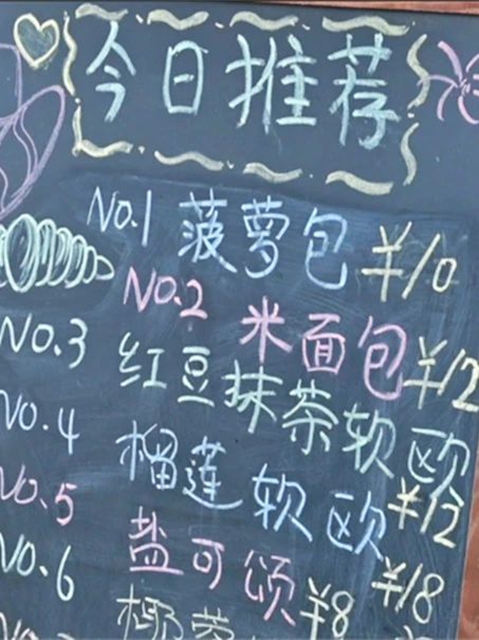 今日推荐
No.1 菠萝包 ¥10
No.2 米面包 ¥12
No.3 红豆抹茶软欧 ¥12
No.4 榴莲软欧 ¥18
No.5 盐可颂 ¥8
No.6 椰萝